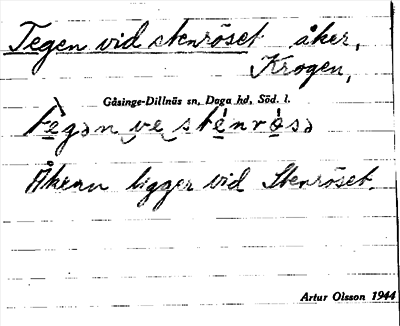 Tegen vid stenröset åker,
Krogen,
Gåsinge-Dillnäs sn, Daga hd, Söd. l.
Åkern ligger vid Stenröset.
Artur Olsson 1944